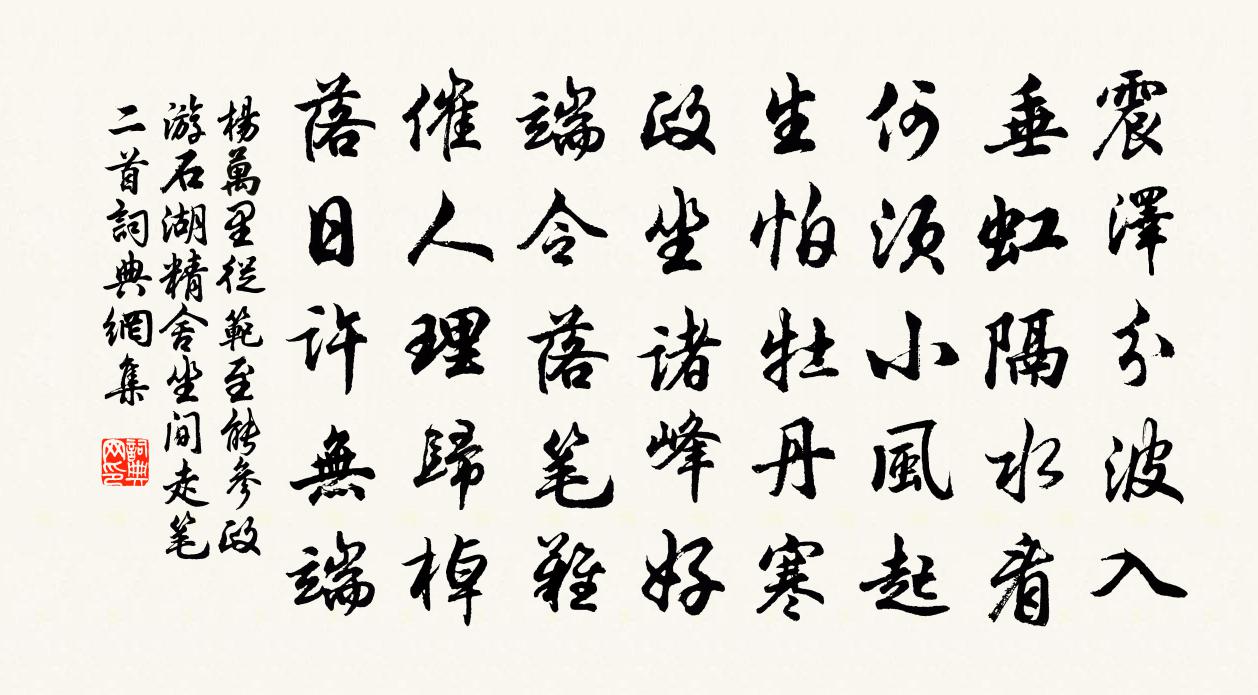 震澤分波入
垂虹隔水看
何須小風起
生怕牡丹寒
政坐諸峰好
端令落笔難
催人理歸棹
落日許無端
楊萬里從範至能參政
游石湖精舍坐间走笔
二首詞典網集
詞典
网印